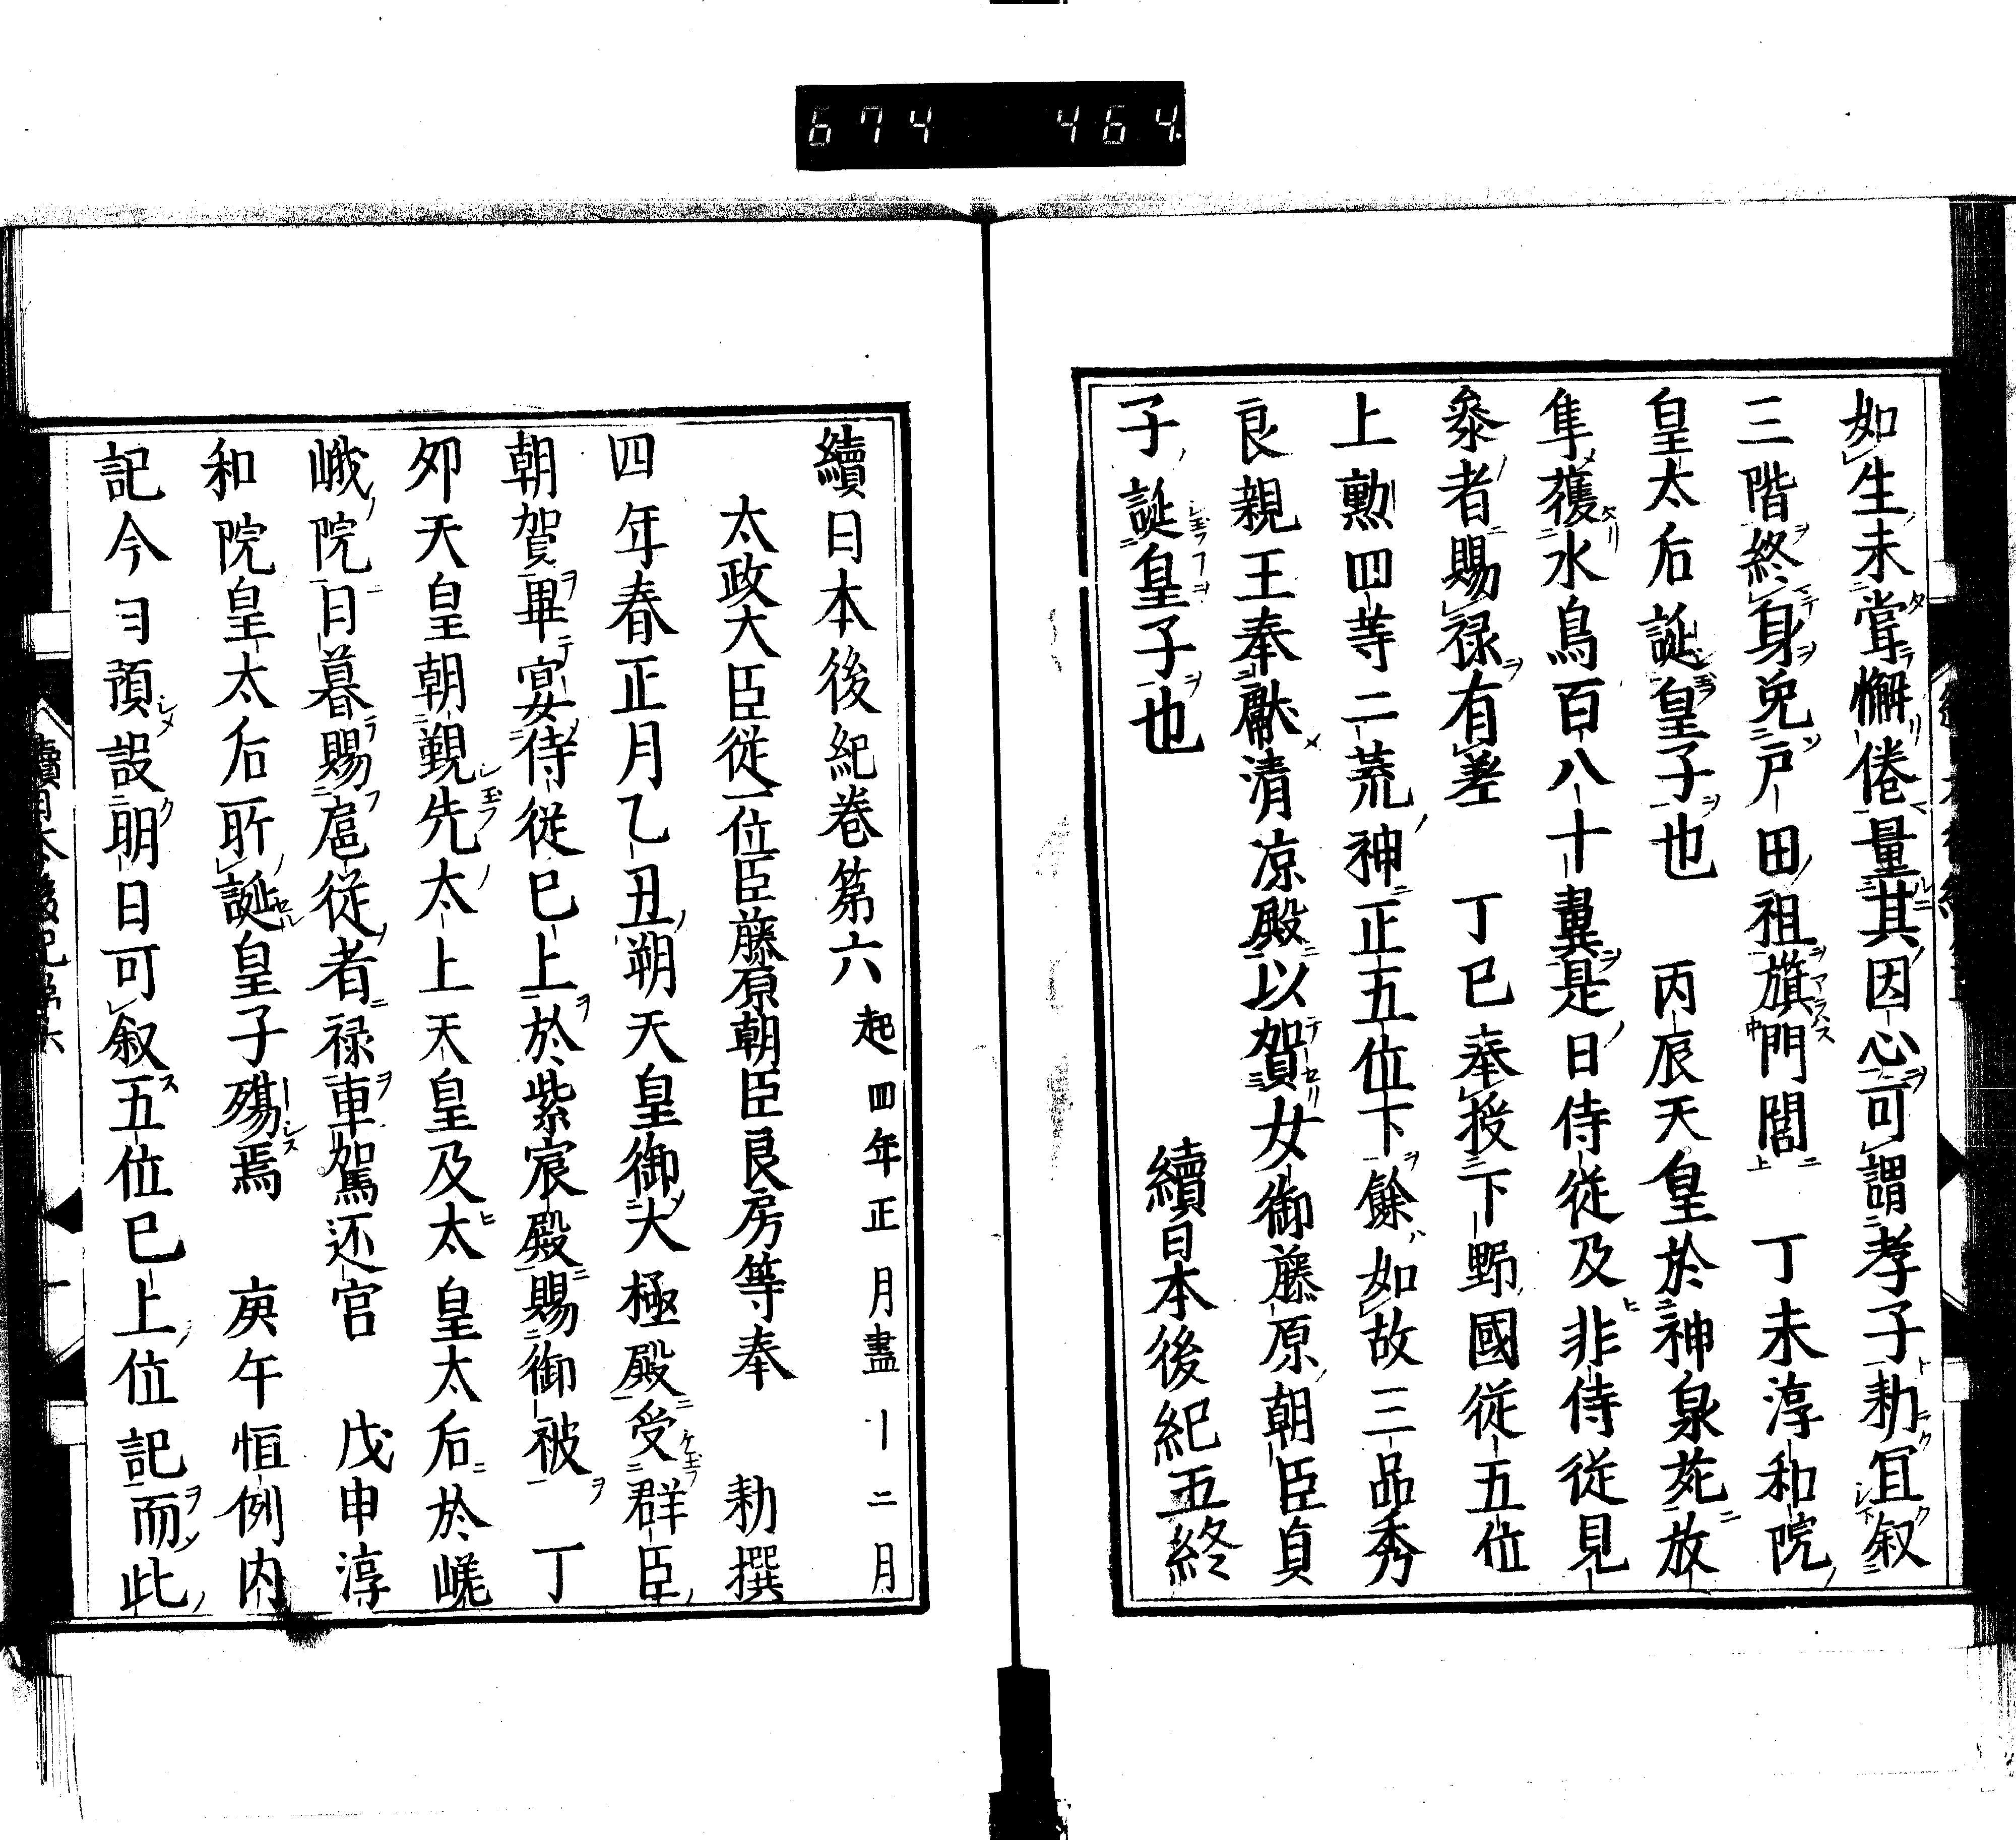 674 464
如生未甞懈倦量其因心可謂孝子勅宜叙
三階終身免戸田祖旗門閭 丁未淳和院
皇太后誕皇子也 丙辰天皇於神泉苑放
隼獲水鳥百八十翼是日侍從及非侍從見
叅者賜禄有差 丁巳奉授下野國從五位
上勲四等二荒神正五位下餘如故三品秀
良親王奉獻清凉殿以賀女御藤原朝臣貞
子誕皇子也 續日本後紀五終
續日本後紀卷第六 起四年正月盡十二月
太政大臣從一位臣藤原朝臣良房等奉 勅撰
四年春正月乙丑朔天皇御大極殿受群臣
朝賀畢宴侍從已上於紫宸殿賜御被 丁
夘天皇朝覲先太上天皇及太皇太后於嵯
峨院日暮賜扈從者禄車駕还宮 戊申淳
和院皇太后所誕皇子殤焉 庚午恒例内
記今日預設明日可叙五位已上位記而此
續日本後紀第六 一